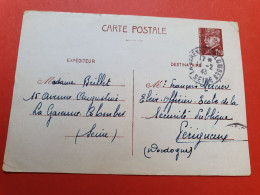 CARTE POSTALE
EXPÉDITEUR
DESTINATAIRE
Madame Brillet
Mr François Mercier
15 Avenue
Elève-Officier Ecole de la
La Garenne Colombes
Sécurité Publique
(Seine)
Périgueux
(Dordogne)